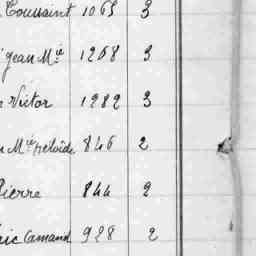 Toussaint 1065 3
jean M.ie 1268 3
Victor 1282 3
M.ie heloïde 846 2
Pierre 844 2
ric Camand 928 2